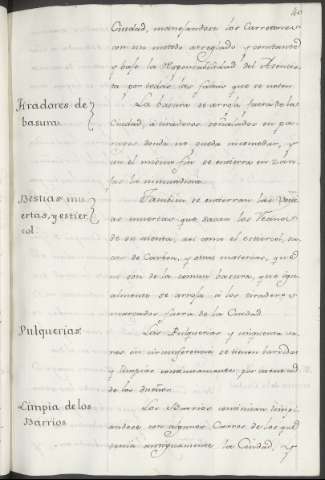 40
Ciudad, manejandose los Carretones
con un metodo arreglado y constante
y bajo la responsabilidad del Asentis-
ta por todas las faltas que se noten.
Tiradores de
basura.
La basura se arroja fuera de la
Ciudad, á tiraderos señalados en pa-
rages donde no pueda incomodar, y
con el mismo fin se entierra en zan-
jas la inmundicia.
Bestias mu-
ertas, y estier-
col.
Tambien se entierran las Besti-
as muertas que sacan los Vecinos
de su cuenta, asi como el estiercol, ca-
de Carbon, y otras materias, que
no son de la comun basura, que igu-
almente se arroja á los tiraderos
marcados fuera de la Ciudad.
Pulquerias.
Las Pulquerias y cinquenta va-
ras en circunferencia se tienen barridas
y limpias continuamente por
de los dueños.
Limpia de los
Barrios
Los Barrios continúan limpi-
andose con algunos Carros de los que
tenia antiguamente la Ciudad, y